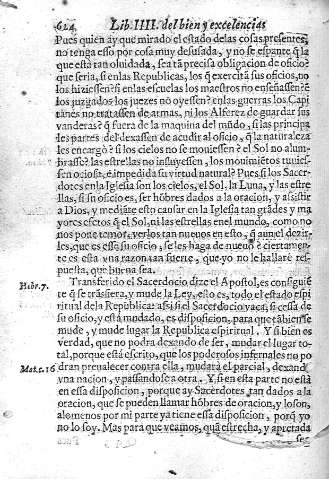 624 Lib. IIII. del bien y excelencias
Pues quien ay que mirado el estado de las cosas presentes,
no tenga esso por cosa muy desusada, y no se espante q̃ la
que esta tan oluidada, sea tã precisa obligacion de oficio?
que seria, si en las Republicas, los q̃ exercitã sus oficios, no
los hiziessen? si en las escuelas los maestros no enseñassen? ẽ
los juzgados los juezes no oyessen? en las guerras los Capi
tanes no tratassen de armas, ni los Alferez de guardar sus
vanderas? q̃ fuera de la maquina del mũdo, si las principa
les partes del dexassen de acudir al oficio, q̃ la naturaleza
les encargò? si los cielos no se mouiessen? el Sol no alum-
brasse? las estrellas no influyessen, los mouimiẽtos tuuies-
sen ociosa, è impedida su virtud natural? Pues si los Sacer-
dotes en la Iglesia son los cielos, el Sol, la Luna, y las estre
llas, si su oficio es, ser hõbres dados a la oracion, y assistir
a Dios, y mediãte esto causar en la Iglesia tan grãdes y ma
yores efetos q̃ el Sol, ni las estrellas en el mundo, como no
nos pone temor, verlos tan nueuos en esto, q̃ aun el dezir-
les, que es esse su oficio, se les haga de nueuo? è ciertamen-
te es esta vna razon tan fuerte, que yo no le hallarè res-
puesta, que buena sea.
Hebr. 7. Transferido el Sacerdocio dize el Apostol, es consiguiẽ
te q̃ se trãsfiera, y mude la Ley, esto es, todo el estado espi
ritual de la Republica assi si el Sacerdocio vaca, si cessa de su
oficio, y està mudado, es disposicion, para que tãbien se
mude, y mude lugar la Republica espiritual. Y si bien es
verdad, que no podra dexando de ser, mudar el lugar to-
tal, porque està escrito, que los poderosos infernales no po
Mat. c. 16 dran preualecer contra ella, mudarà el parcial, dexando
vna nacion, y passandose a otra. Y si en esta parte no està
en essa disposicion, porque ay Sacerdotes tan dados a la
oracion, que se pueden llamar hõbres de oracion, y lo son,
alomenos por mi parte ya tiene essa disposicion, porq̃ yo
no lo soy. Mas para que veamos, quã estrecha, y apretada
ser